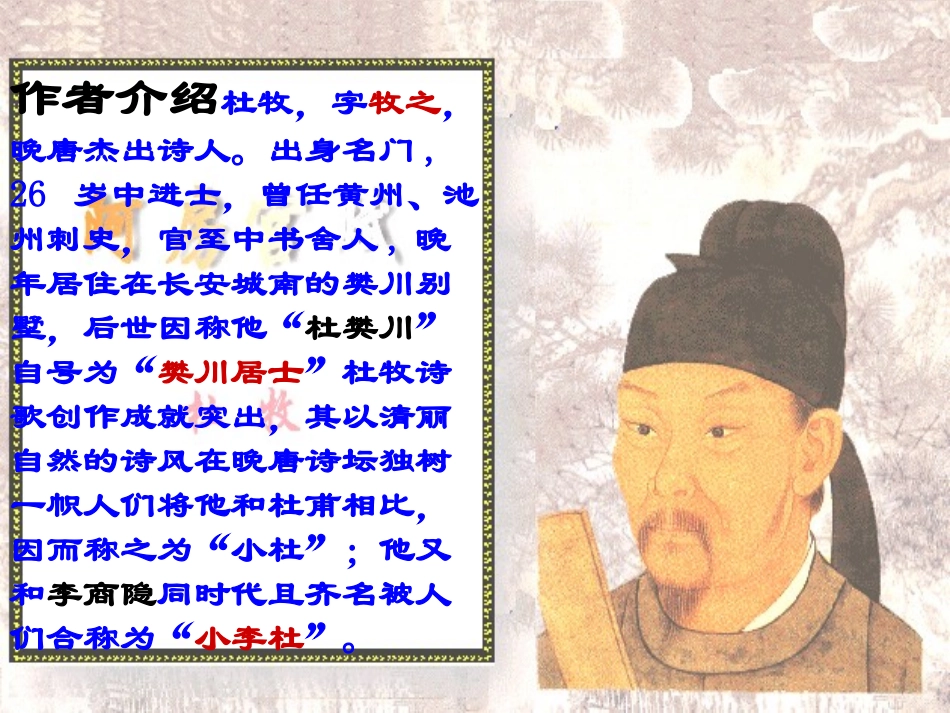 作者介绍杜牧，字牧之，
晚唐杰出诗人。出身名门，
26 岁中进士，曾任黄州、池
州刺史，官至中书舍人，晚
年居住在长安城南的樊川别
墅，后世因称他“杜樊川”
自号为“樊川居士”杜牧诗
歌创作成就突出，其以清丽
自然的诗风在晚唐诗坛独树
一帜人们将他和杜甫相比，
因而称之为“小杜”；他又
和李商隐同时代且齐名被人
们合称为“小李杜”。
杜 牧